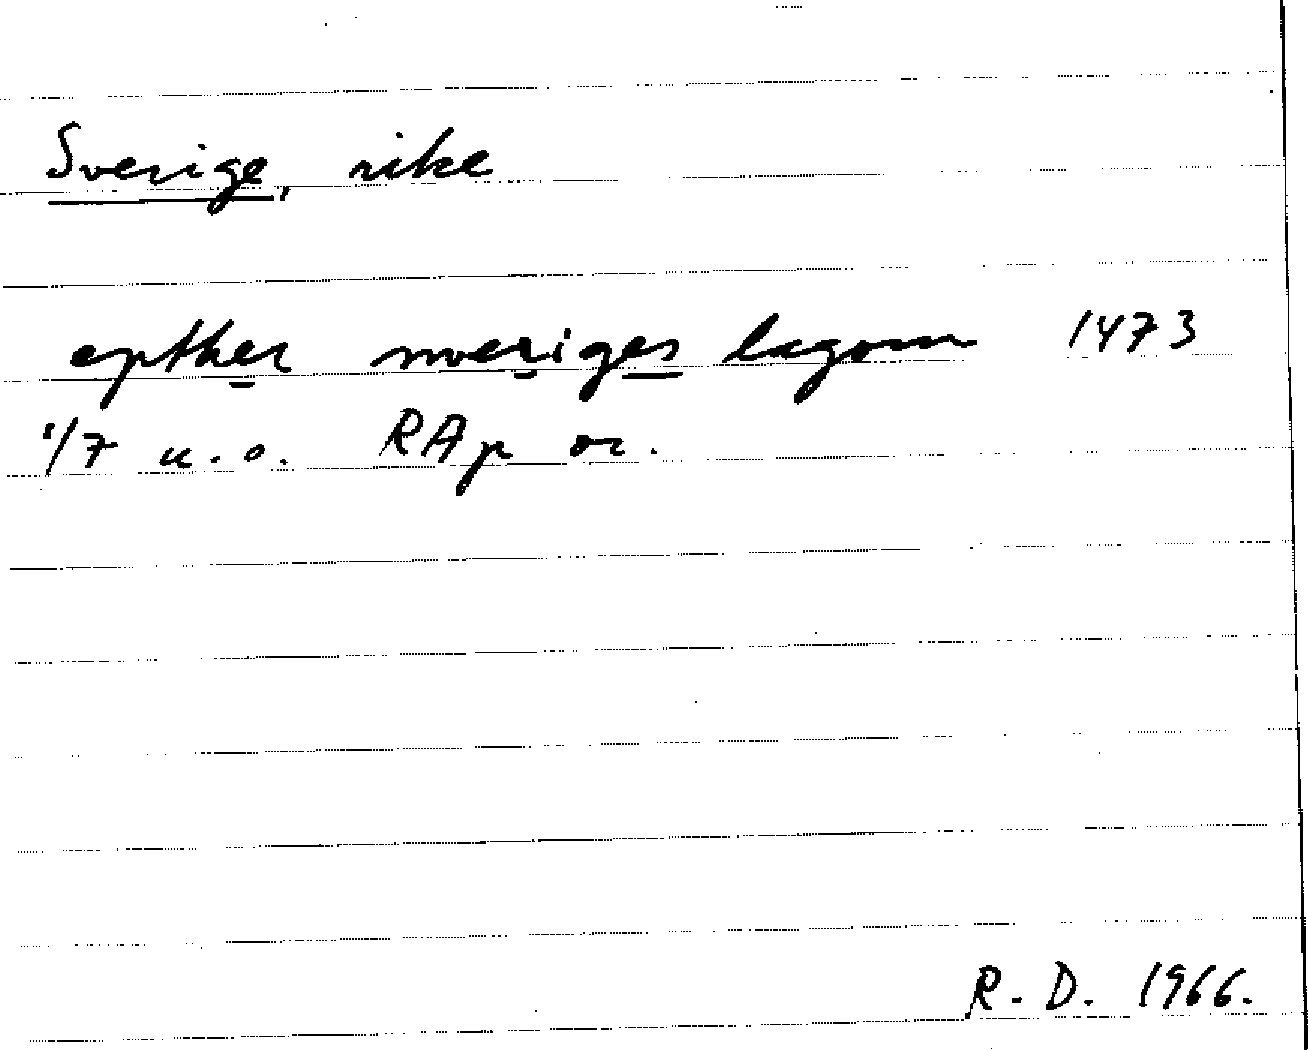 Sverige, rike
epther sweriges lagom 1473
1/7 u.o. RAp or.
R. D. 1966.